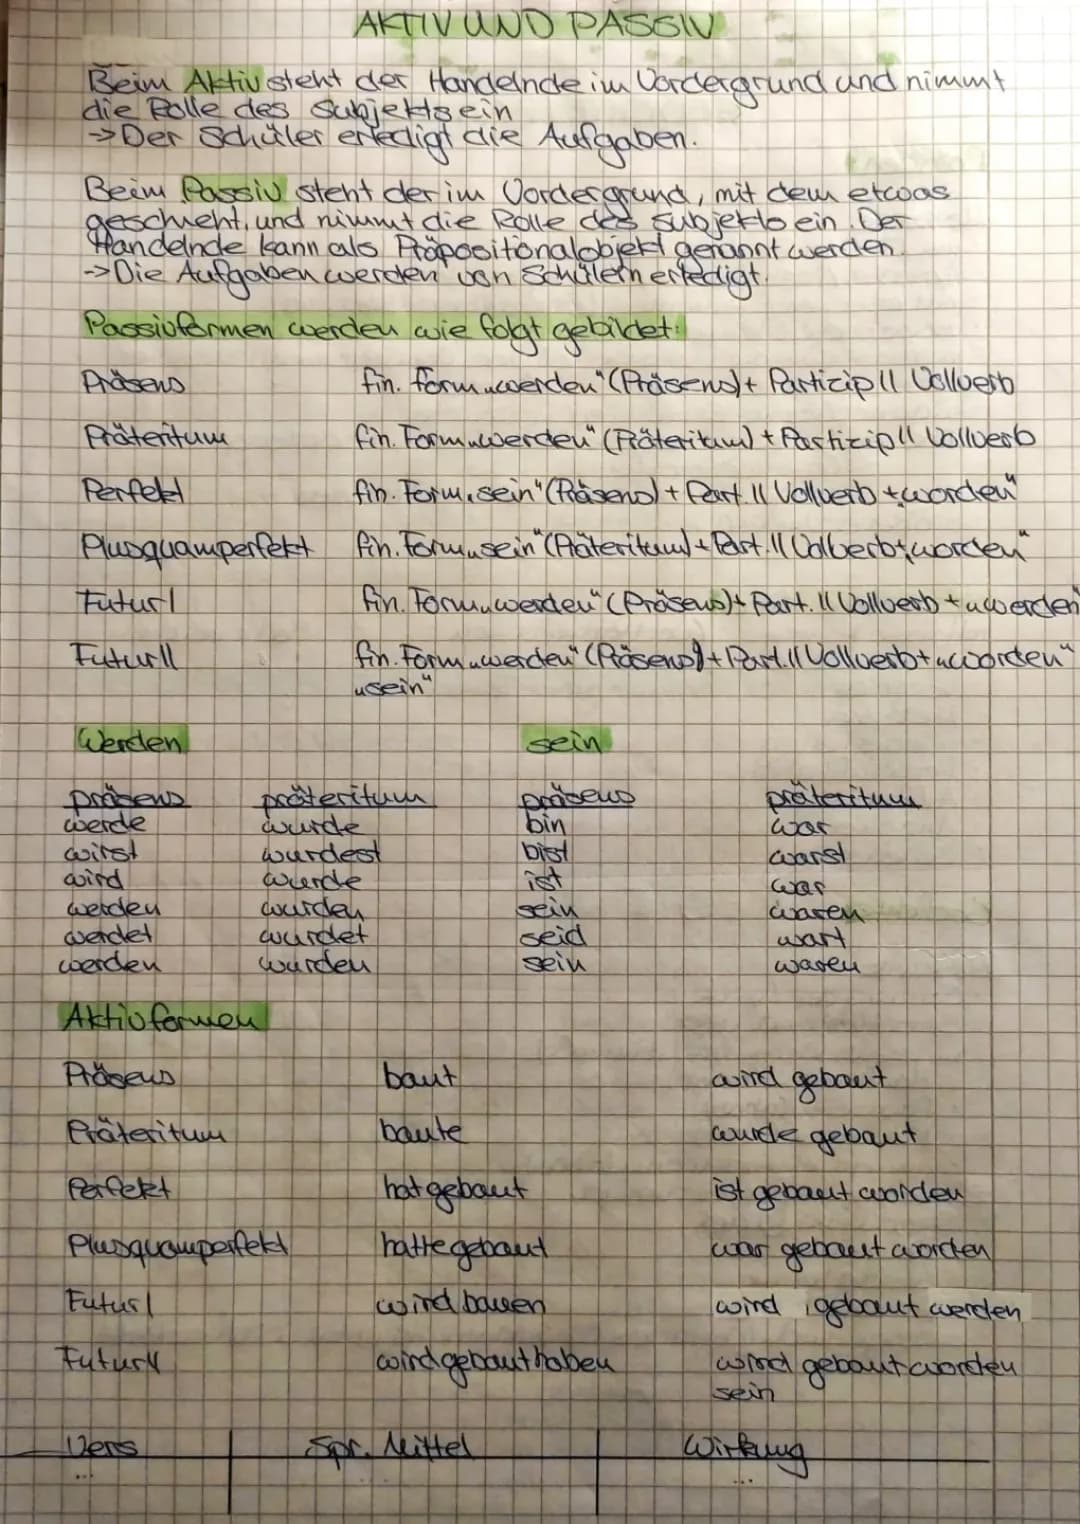 AKTIV UND PASSIV
Beim Aktiv steht der Handelnde im Vordergrund und nimmt
die Rolle des Subjekts ein
->Der Schüler erledigt die Aufgaben.
Beim Passiv steht der im Vordergrund, mit dem etwas
geschieht, und nimmt die Rolle des Subjekts ein. Der
Handelnde kann als Präpositionalobjekt genannt werden.
->Die Aufgaben werden von Schülern erledigt.
Passivformen werden wie folgt gebildet:
Präsens fin. Form „werden" (Präsens)+ Partizip II Vollverb
Präteritum fin. Form „werden" (Präteritum) + Partizip II Vollverb
Perfekt fin. Form „sein" (Präsens) + Part. II Vollverb + „worden"
Plusquamperfekt fin. Form „sein" (Präteritum) + Part. II Vollverb + „worden"
Futur I fin. Form „werden" (Präsens)+ Part. II Vollverb + „werden"
Futur II fin. Form „werden" (Präsens)+ Part. II Vollverb + „worden"
„sein"
Werden sein
präsens präteritum präsens präteritum
werde wurde bin war
wirst wurdest bist warst
wird wurde ist war
werden wurden sein waren
werdet wurdet seid wart
werden wurden sein waren
Aktivformen
Präsens baut wird gebaut
Präteritum baute wurde gebaut
Perfekt hat gebaut ist gebaut worden
Plusquamperfekt hatte gebaut war gebaut worden
Futur I wird bauen wird gebaut werden
Futur II wird gebaut haben wird gebaut worden
sein
Vers Spr. Mittel Wirkung
... ...